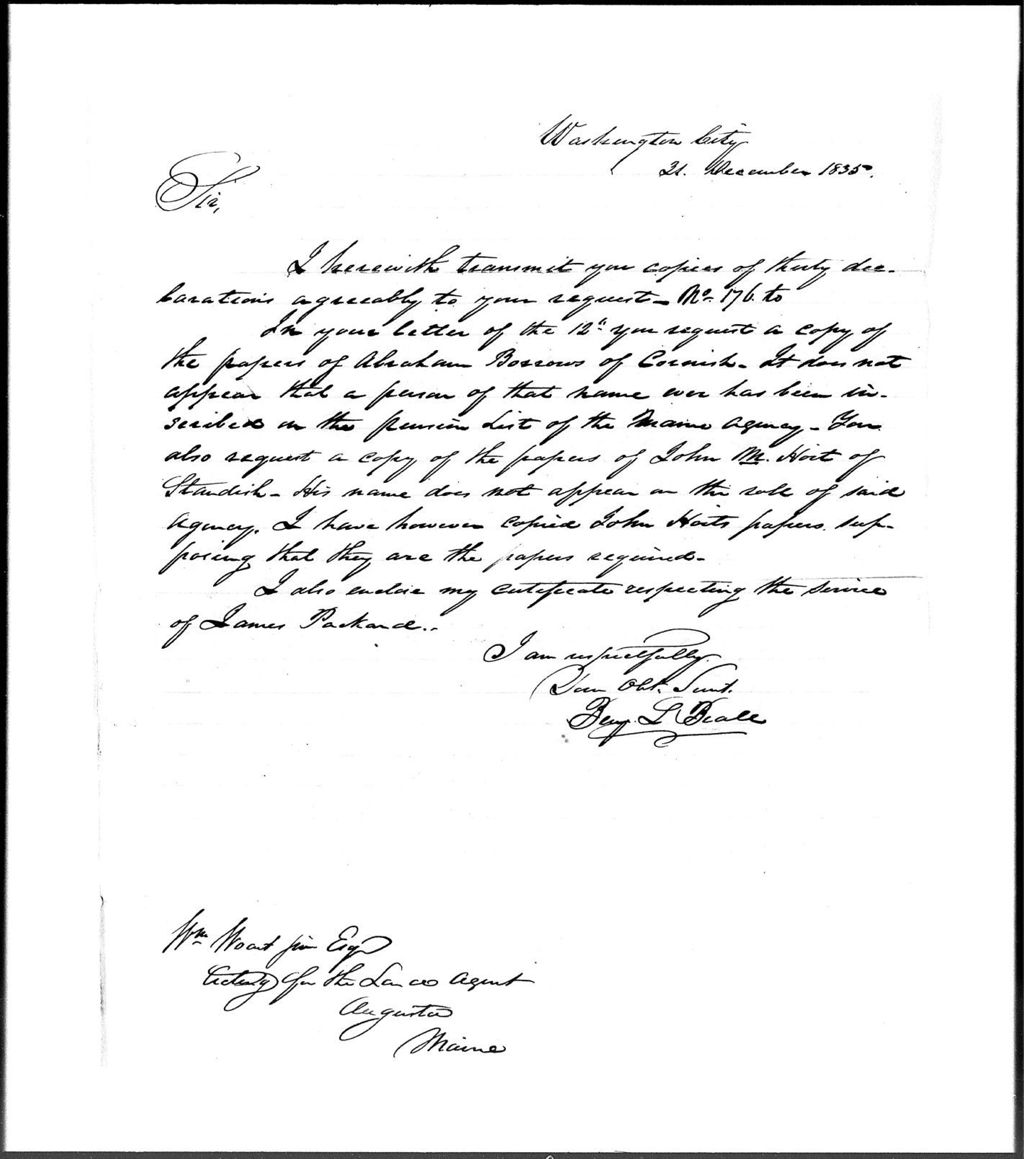 Washington City
21. December 1835.
Sir,
I herewith transmit you copies of thirty dec-
larations agreeably to your request - No. 176. to
In your letter of the 12th you request a copy of
the papers of Abraham Borrows of Cornish - It does not
appear that a person of that name ever has been in-
scribed on the pension List of the Maine Agency - You
also request a copy of the papers of John M. Hoit of
Standish - His name does not appear on the roll of said
Agency. I have however copied John Hoits papers. sup-
posing that they are the papers required -
I also enclose my certificate respecting the service
of James Packard..
I am respectfully
Your Obt. Servt.
Benj. L. Beall
Wm Woart jun Esq
Acting for the Land Agent
Augusta
Maine